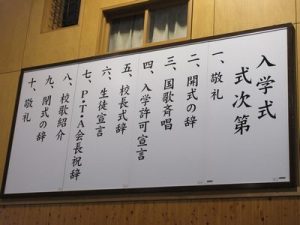 入学式
式次第
一、敬礼
二、開式の辞
三、国歌斉唱
四、入学許可宣言
五、校長式辞
六、生徒宣言
七、P・T・A会長祝辞
八、校歌紹介
九、閉式の辞
十、敬礼